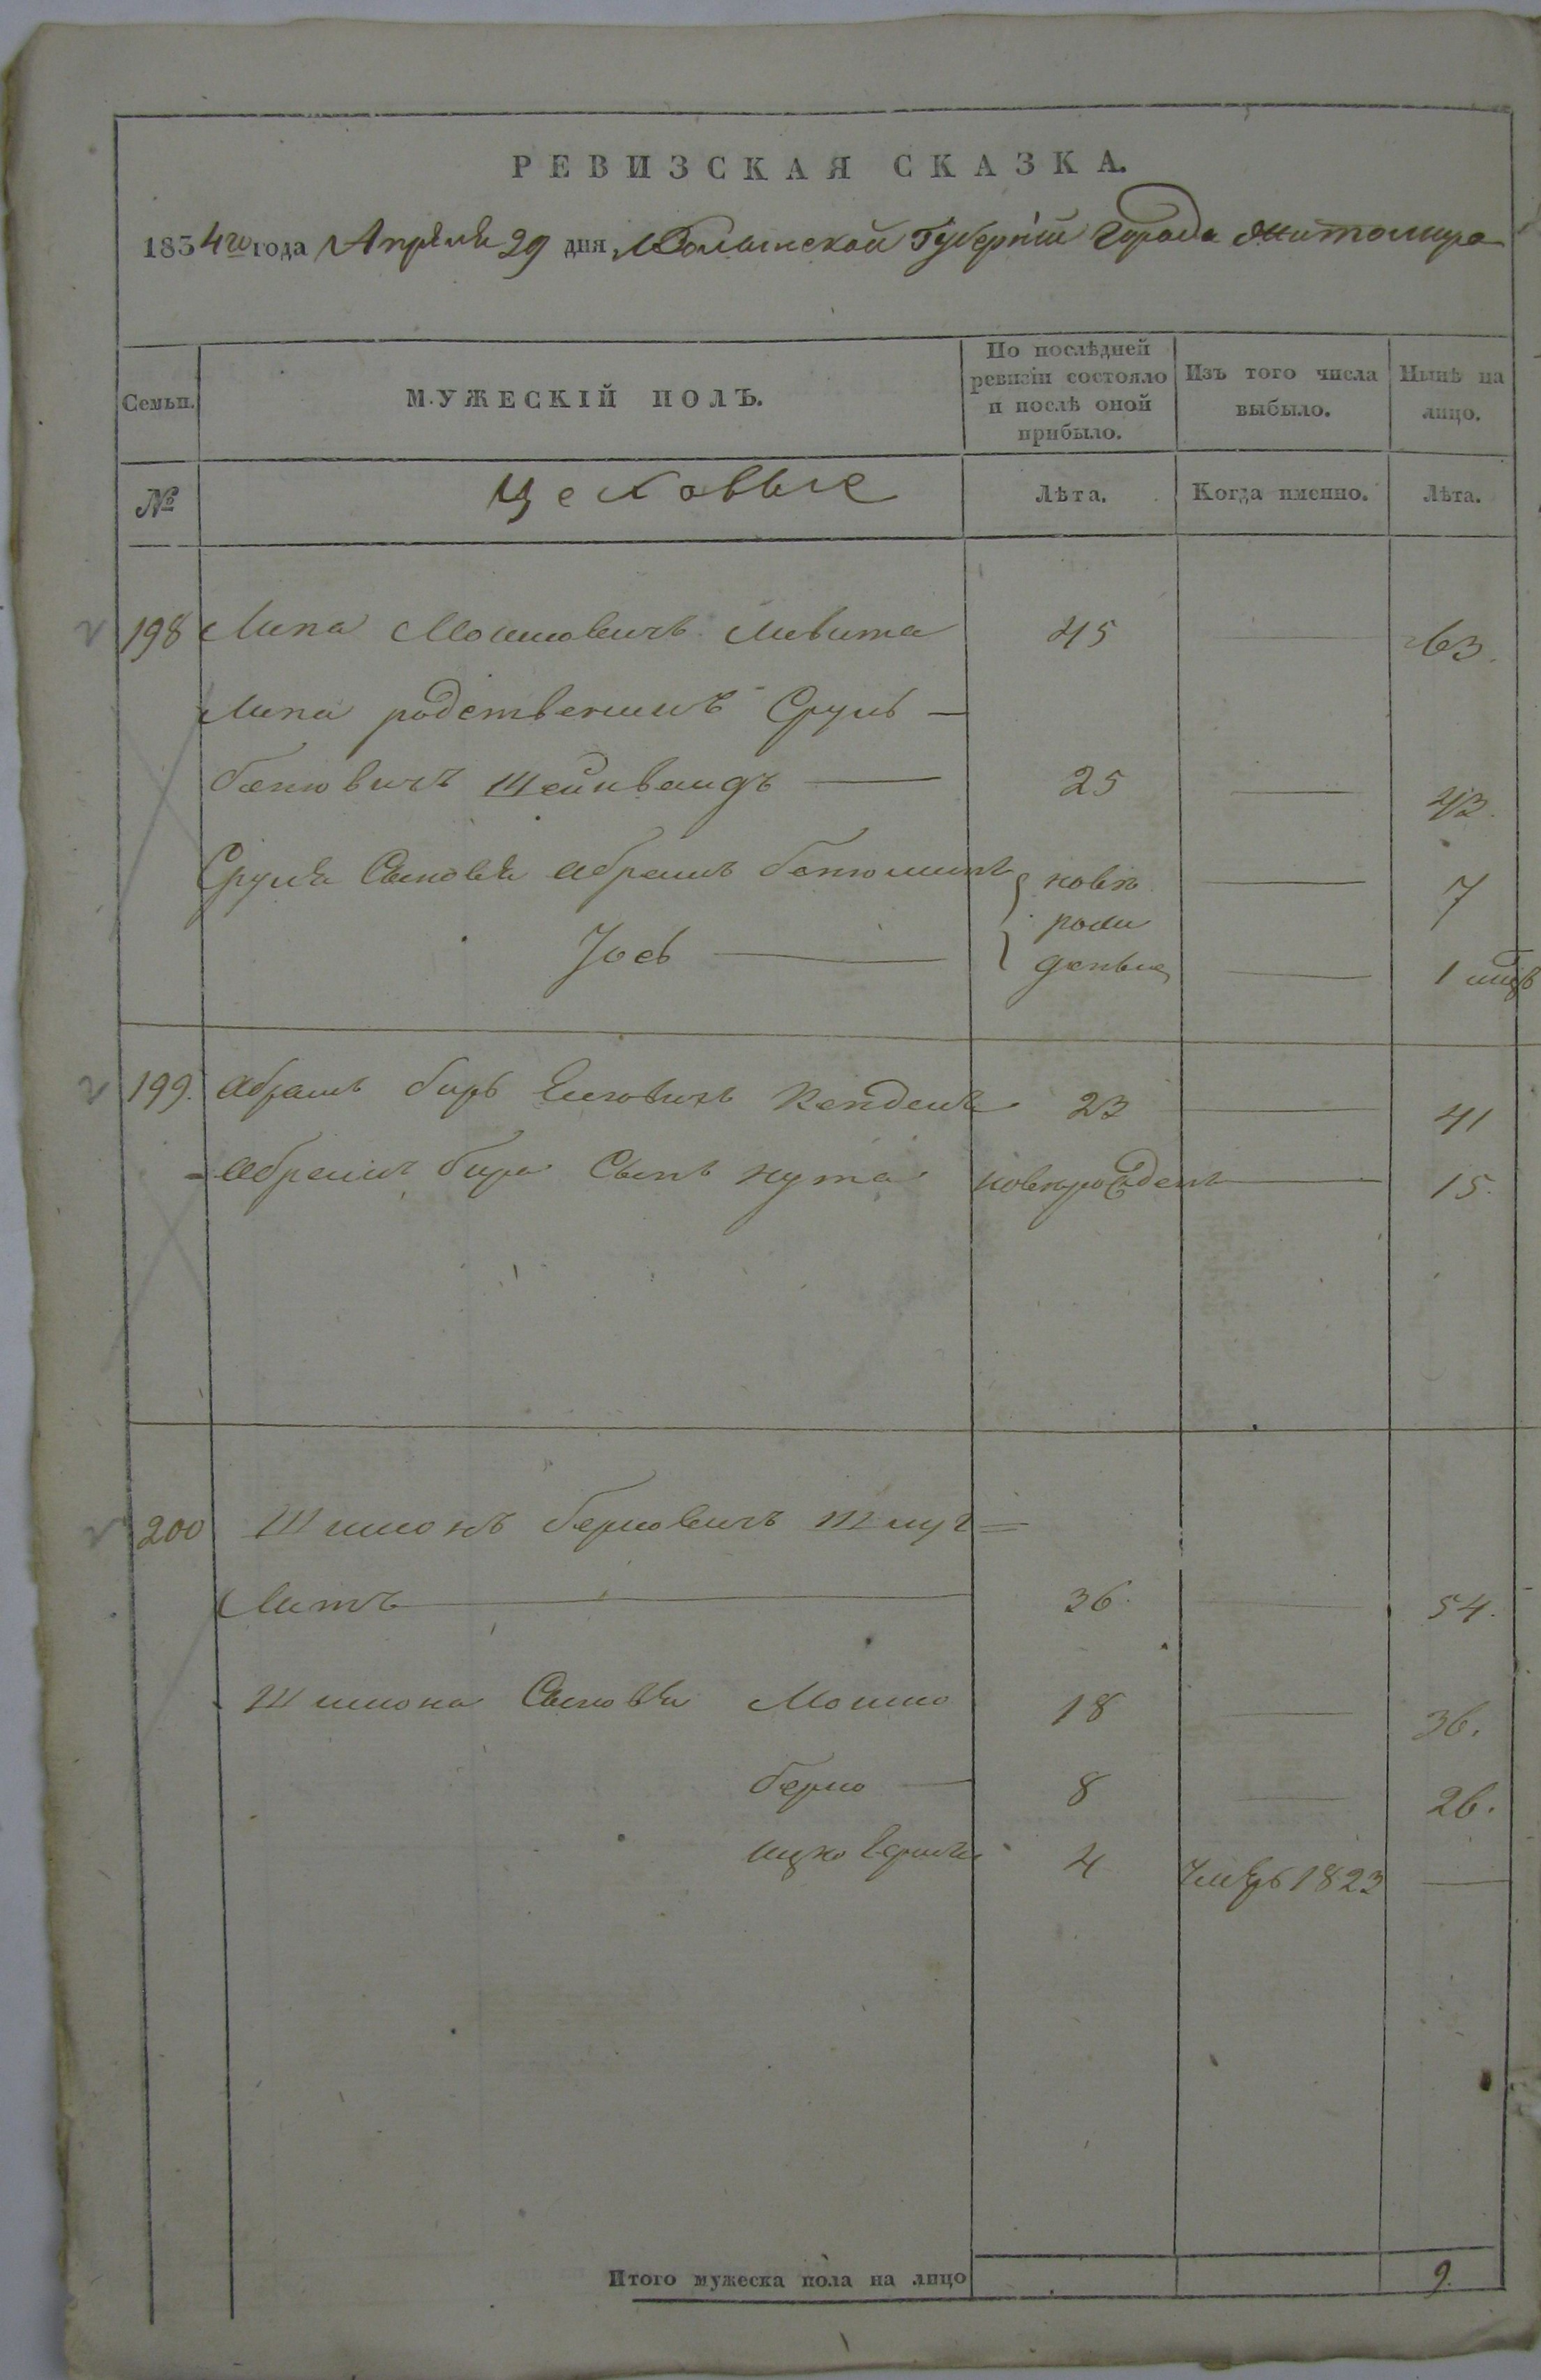 РЕВИЗСКАЯ СКАЗКА.
1834го года Апреля 29 дня Волынской Губерніи Города Житомира
Семьи.
МУЖЕСКІЙ ПОЛЪ.
По послѣдней ревизіи состояло и послѣ оной прибыло.
Изъ того числа выбыло.
Нынѣ на лицо.
№
Цеховые
Лѣта.
Когда именно.
Лѣта.
198 Липа Мошковичъ Левита 45 — 63.
Липа родственникъ Сруль —
Бенювичъ Шейнвандъ — 25 — 43.
Сруля Сыновья Абрамъ Бенюминъ новъ — 7
рож
Іось — деные — 1
199. Абрамъ Беръ 23 — 41
Абрамъ Бера Сынъ Нута новорожденъ — 15.
200 Шимонъ Берковичъ =
литъ — 36. — 54.
Шимона Сыновья Мошко 18 — 36.
Берко — 8 — 26.
Ицко 4 Умеръ 1823 —
Итого мужеска пола на лицо 9.